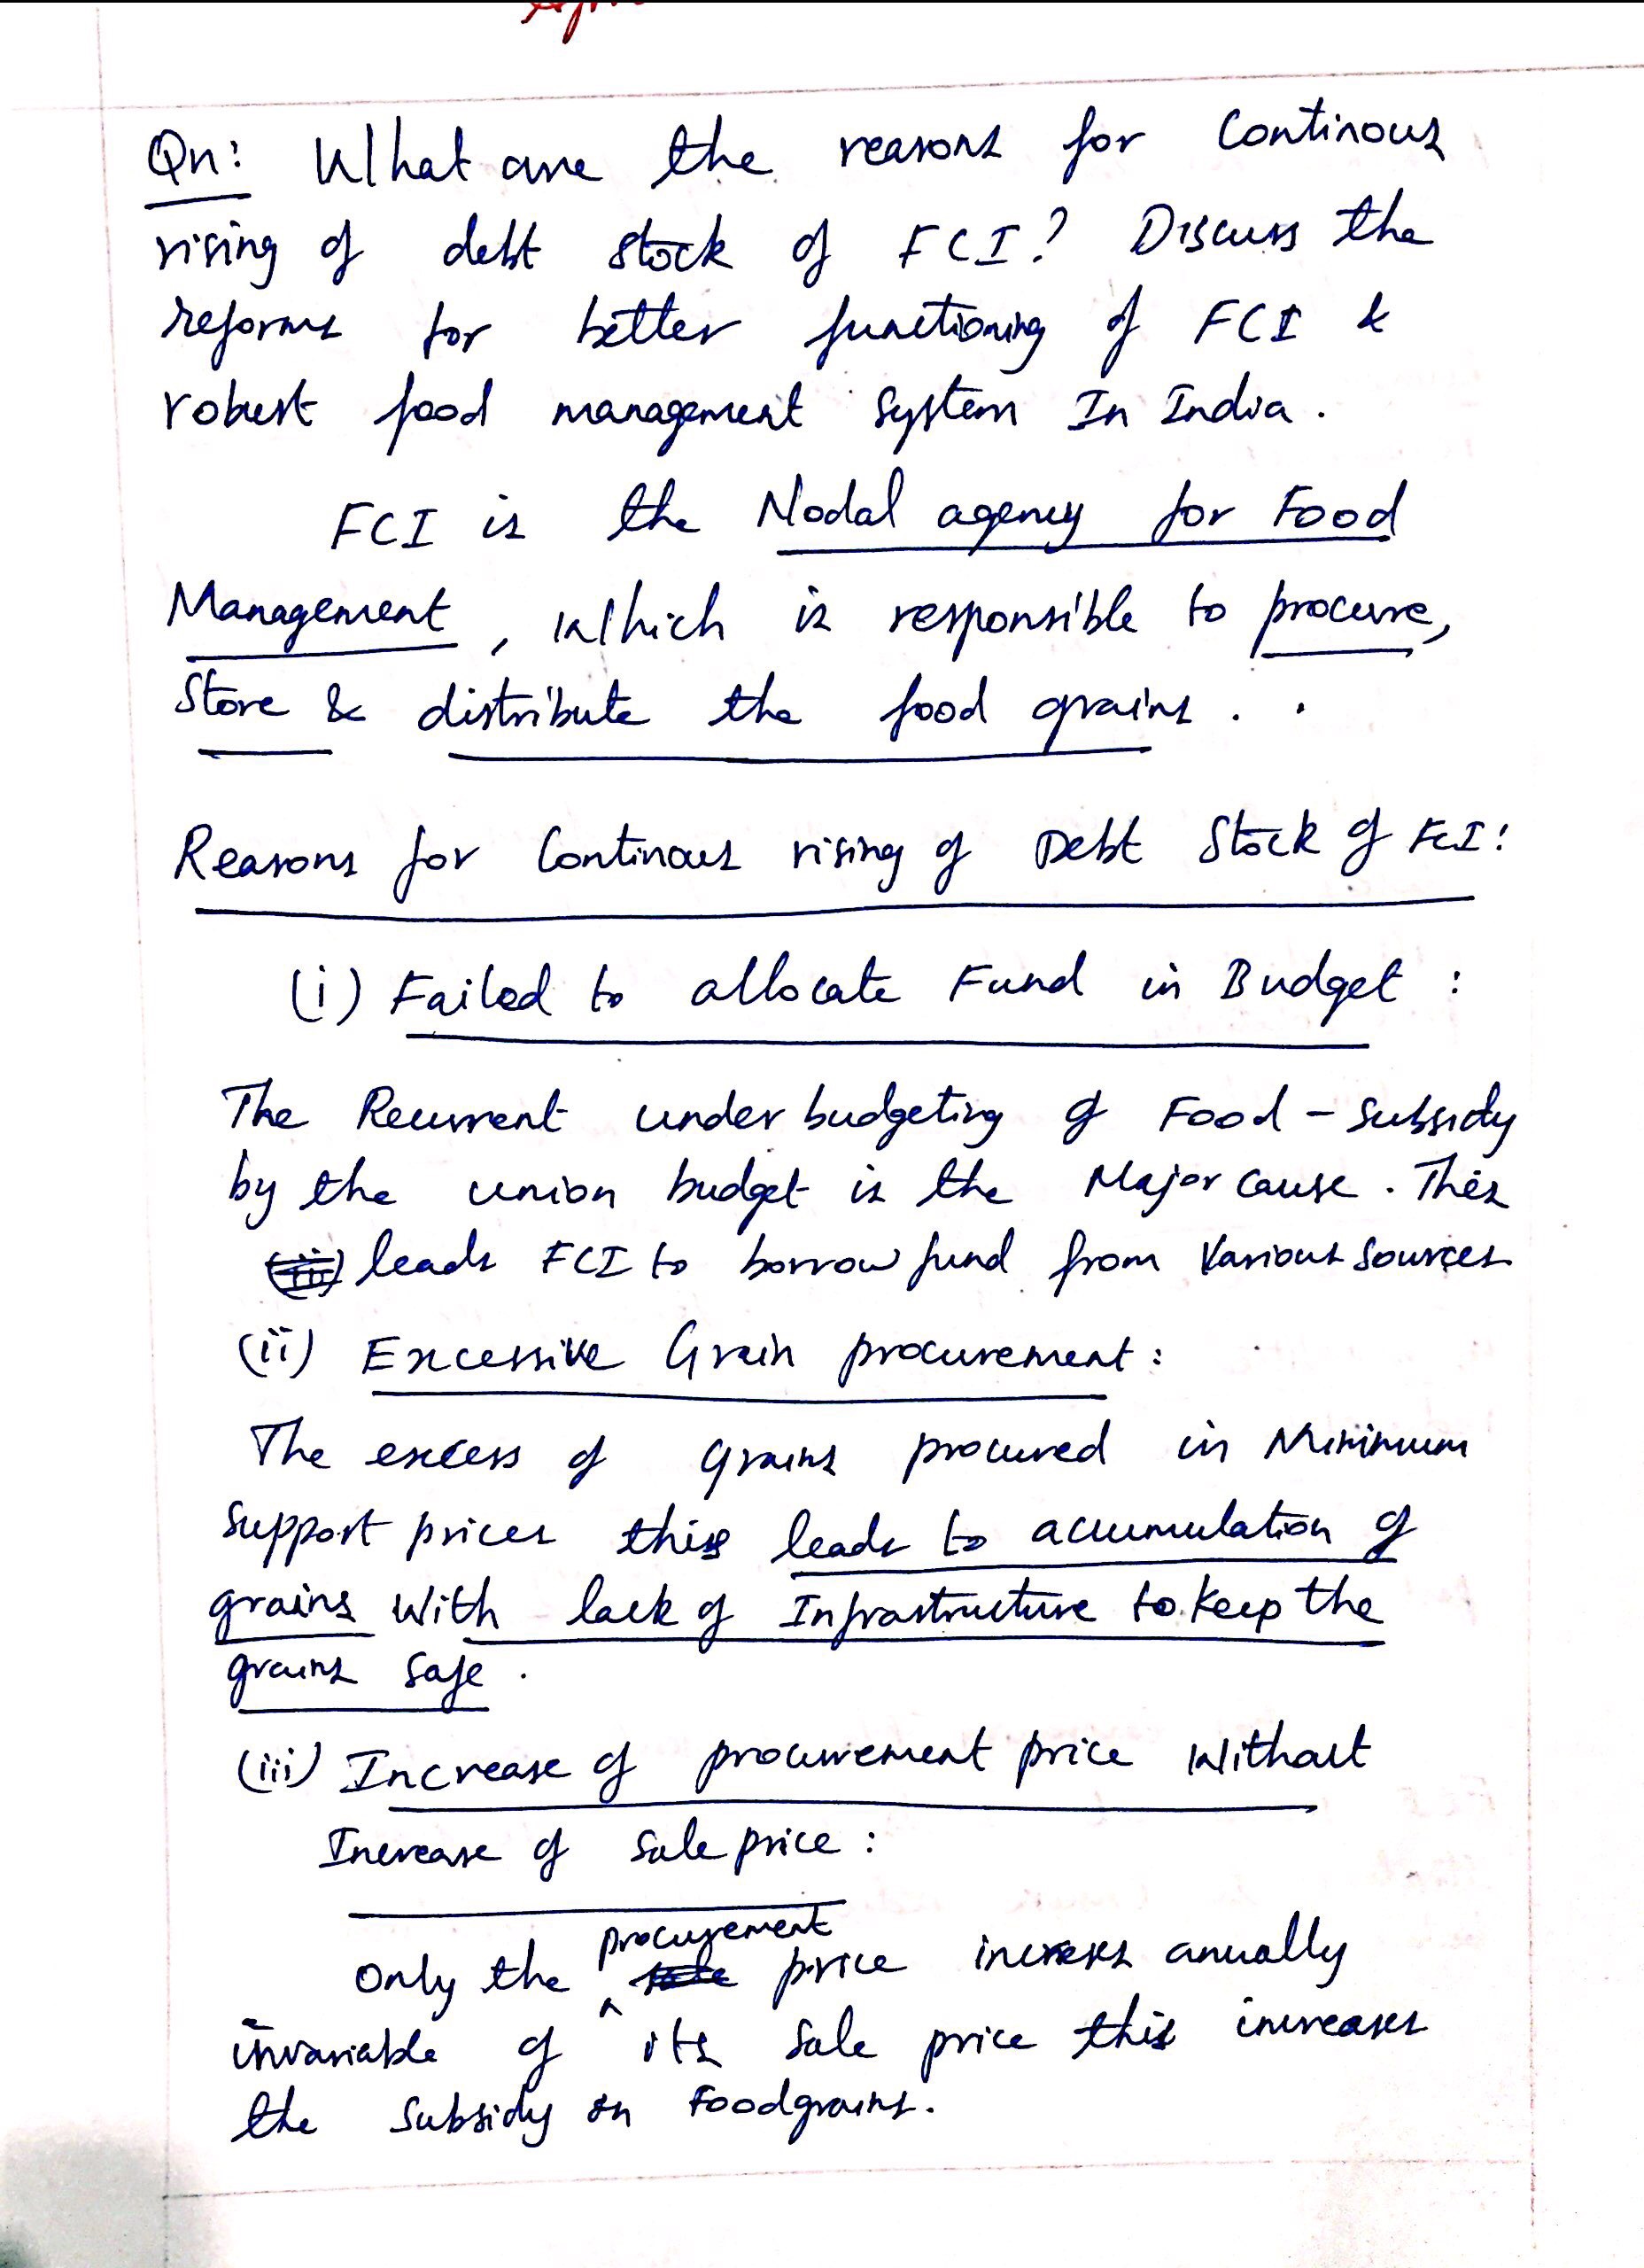 Qn: What are the reasons for Continous
rising of debt stock of FCI? Discuss the
reforms for better functioning of FCI &
robust food management System In India.
FCI is the Nodal agency for Food
Management, Which is responsible to procure,
Store & distribute the food grains.
Reasons for Continous rising of Debt Stock of FCI:
(i) Failed to allocate Fund in Budget:
The Recurrent under budgeting of Food-Subsidy
by the union budget is the Major cause. This
leads FCI to borrow fund from Various Sources
(ii) Excessive Grain procurement:
The excess of Grains procured in Minimum
Support prices this leads to accumulation of
grains With lack of Infrastructure to keep the
grains safe.
(iii) Increase of procurement price Without
Increase of Sale price:
procurement
Only the price increses anually
invariable of its Sale price this increases
the Subsidy on Foodgrains.